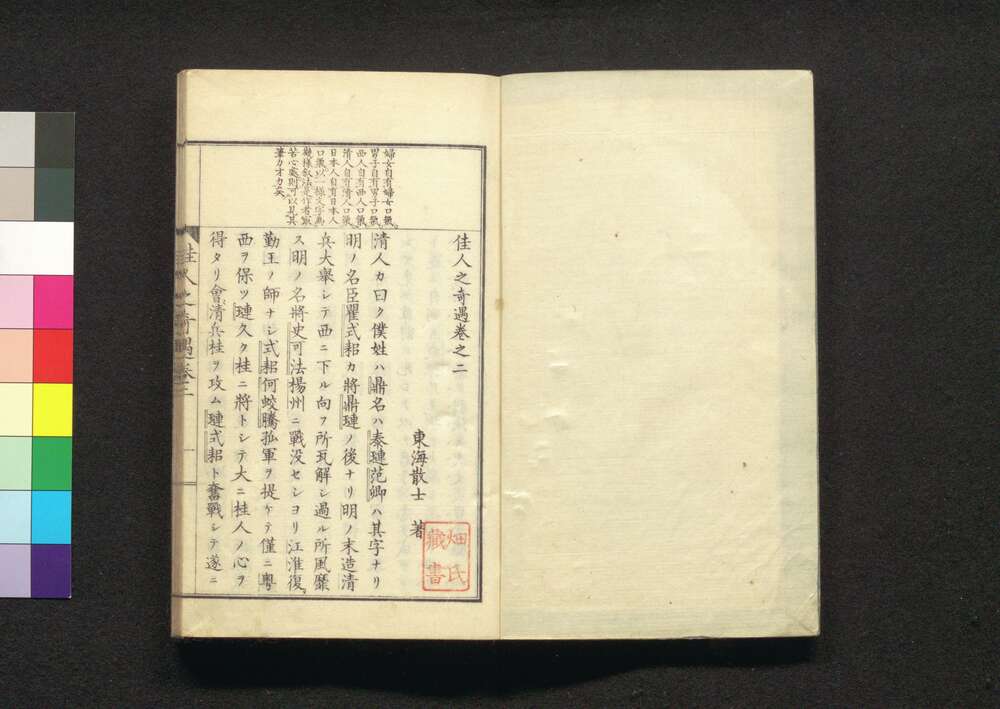 佳人之奇遇卷之二
東海散士 著
清人カ曰ク僕姓ハ鼎名ハ泰璉范卿ハ其字ナリ
明ノ名臣瞿式耜カ將鼎璉ノ後ナリ明ノ末造清
兵大舉シテ西ニ下ル向フ所瓦解シ過ル所風靡
ス明ノ名將史可法楊州ニ戰没セシヨリ江淮復
勤王ノ師ナシ式耜何蛟騰孤軍ヲ提ケテ僅ニ粤
西ヲ保ツ璉久ク桂ニ將トシテ大ニ桂人ノ心ヲ
得タリ會清兵桂ヲ攻ム璉式耜ト奮戰シテ遂ニ
婦女自有婦女口氣
男子自有男子口氣
西人自有西人口氣
清人自有清人口氣
日本人自有日本人
口氣以一樣文字爲
幾樣敘法是作者最
苦心處則可以見其
筆力才力矣
佳人之奇遇卷二
一
畑氏
藏書